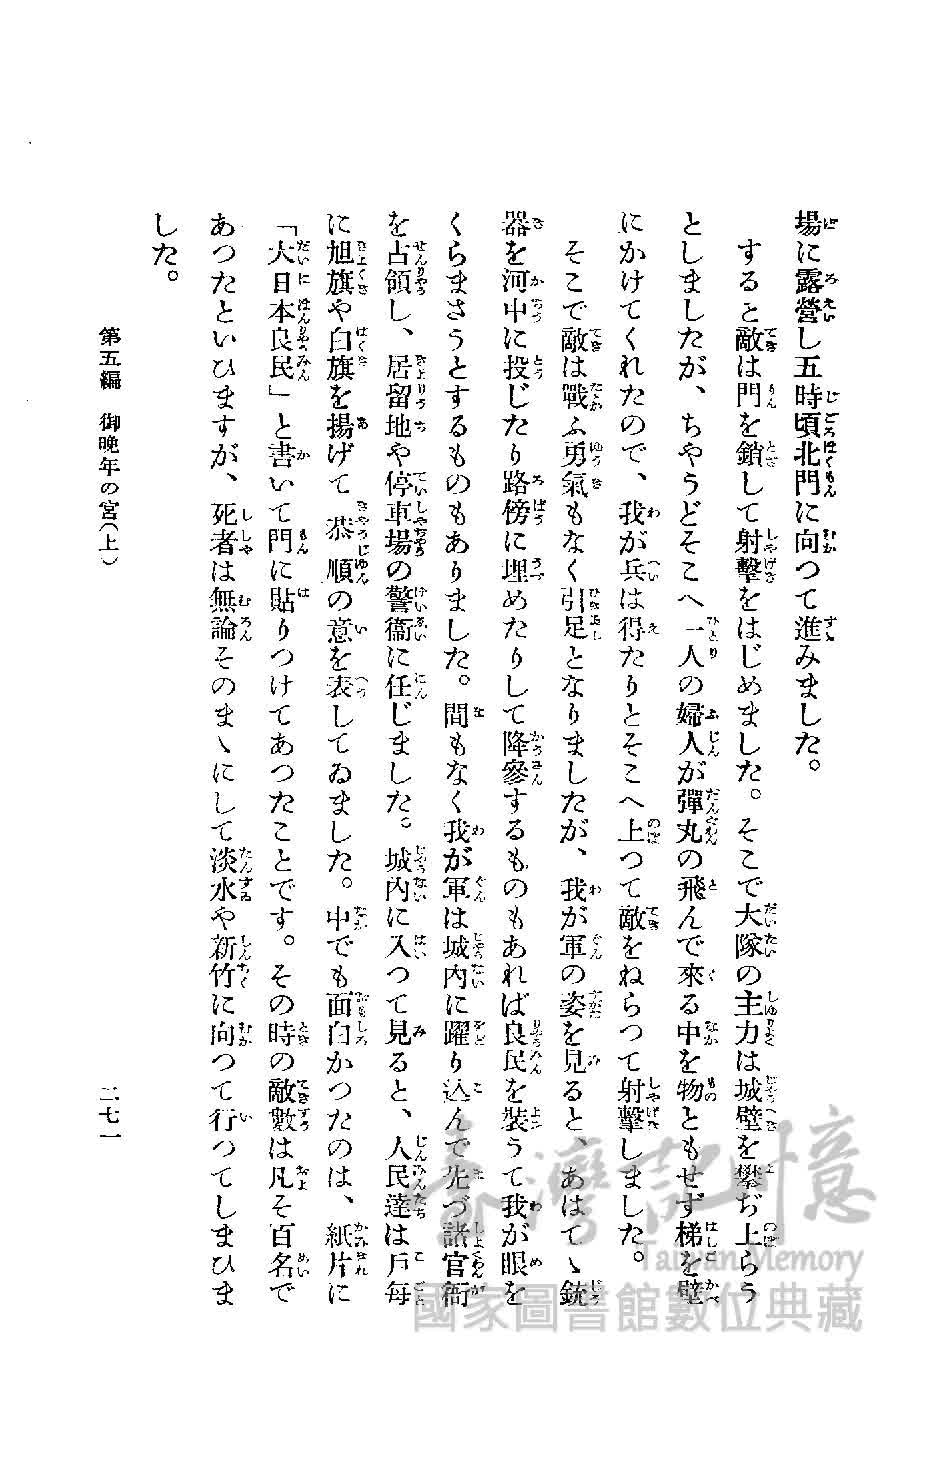 場に露營し五時頃北門に向つて進みました。
すると敵は門を鎖して射擊をはじめました。そこで大隊の主力は城壁を攀ぢ上らう
としましたが、ちやうどそこへ一人の婦人が彈丸の飛んで來る中を物ともせず梯を壁
にかけてくれたので、我が兵は得たりとそこへ上つて敵をねらつて射擊しました。
そこで敵は戰ふ勇氣もなく引足となりましたが、我が軍の姿を見ると、あはてゝ銃
器を河中に投じたり路傍に埋めたりして降參するものもあれば良民を裝うて我が眼を
くらまさうとするものもありました。間もなく我が軍は城內に躍り込んで先づ諸官衙
を占領し、居留地や停車場の警衞に任じました。城內に入つて見ると、人民達は戶每
に旭旗や白旗を揚げて恭順の意を表してゐました。中でも面白かつたのは、紙片に
「大日本良民」と書いて門に貼りつけてあつたことです。その時の敵數は凡そ百名で
あつたといひますが、死者は無論そのまゝにして淡水や新竹に向つて行つてしまひま
した。
第五編 御晚年の宮(上)
二七一
臺灣記憶
Taiwan Memory
國家圖書館數位典藏